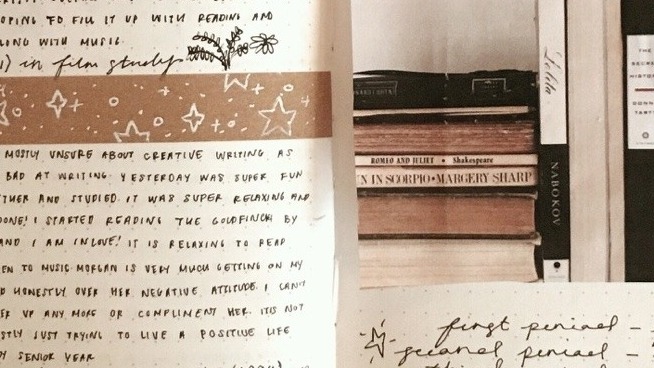 OPING TO FILL IT UP WITH READING AND
LONG WITH MUSIC.
1) in film study
MOSTLY UNSURE ABOUT CREATIVE WRITING, AS
BAD AT WRITING. YESTERDAY WAS SUPER FUN
THER AND STUDIED. IT WAS SUPER RELAXING AND
DONE! I STARTED READING THE GOLDFINCH BY
AND I AM IN LOVE! IT IS RELAXING TO READ
EN TO MUSIC. MORGAN IS VERY MUCH GETTING ON MY
D HONESTLY OVER HER NEGATIVE ATTITUDE. I CAN'T
ER UP ANY MORE OR COMPLIMENT HER. IT IS NOT
STLY JUST TRYING TO LIVE A POSITIVE LIFE
DY SENIOR YEAR
ROMEO AND JULIET • Shakespeare
N IN SCORPIO • MARGERY SHARP
Lolita
NABOKOV
THE
SECRE
HISTO
DONN
TART
first period -
second period -